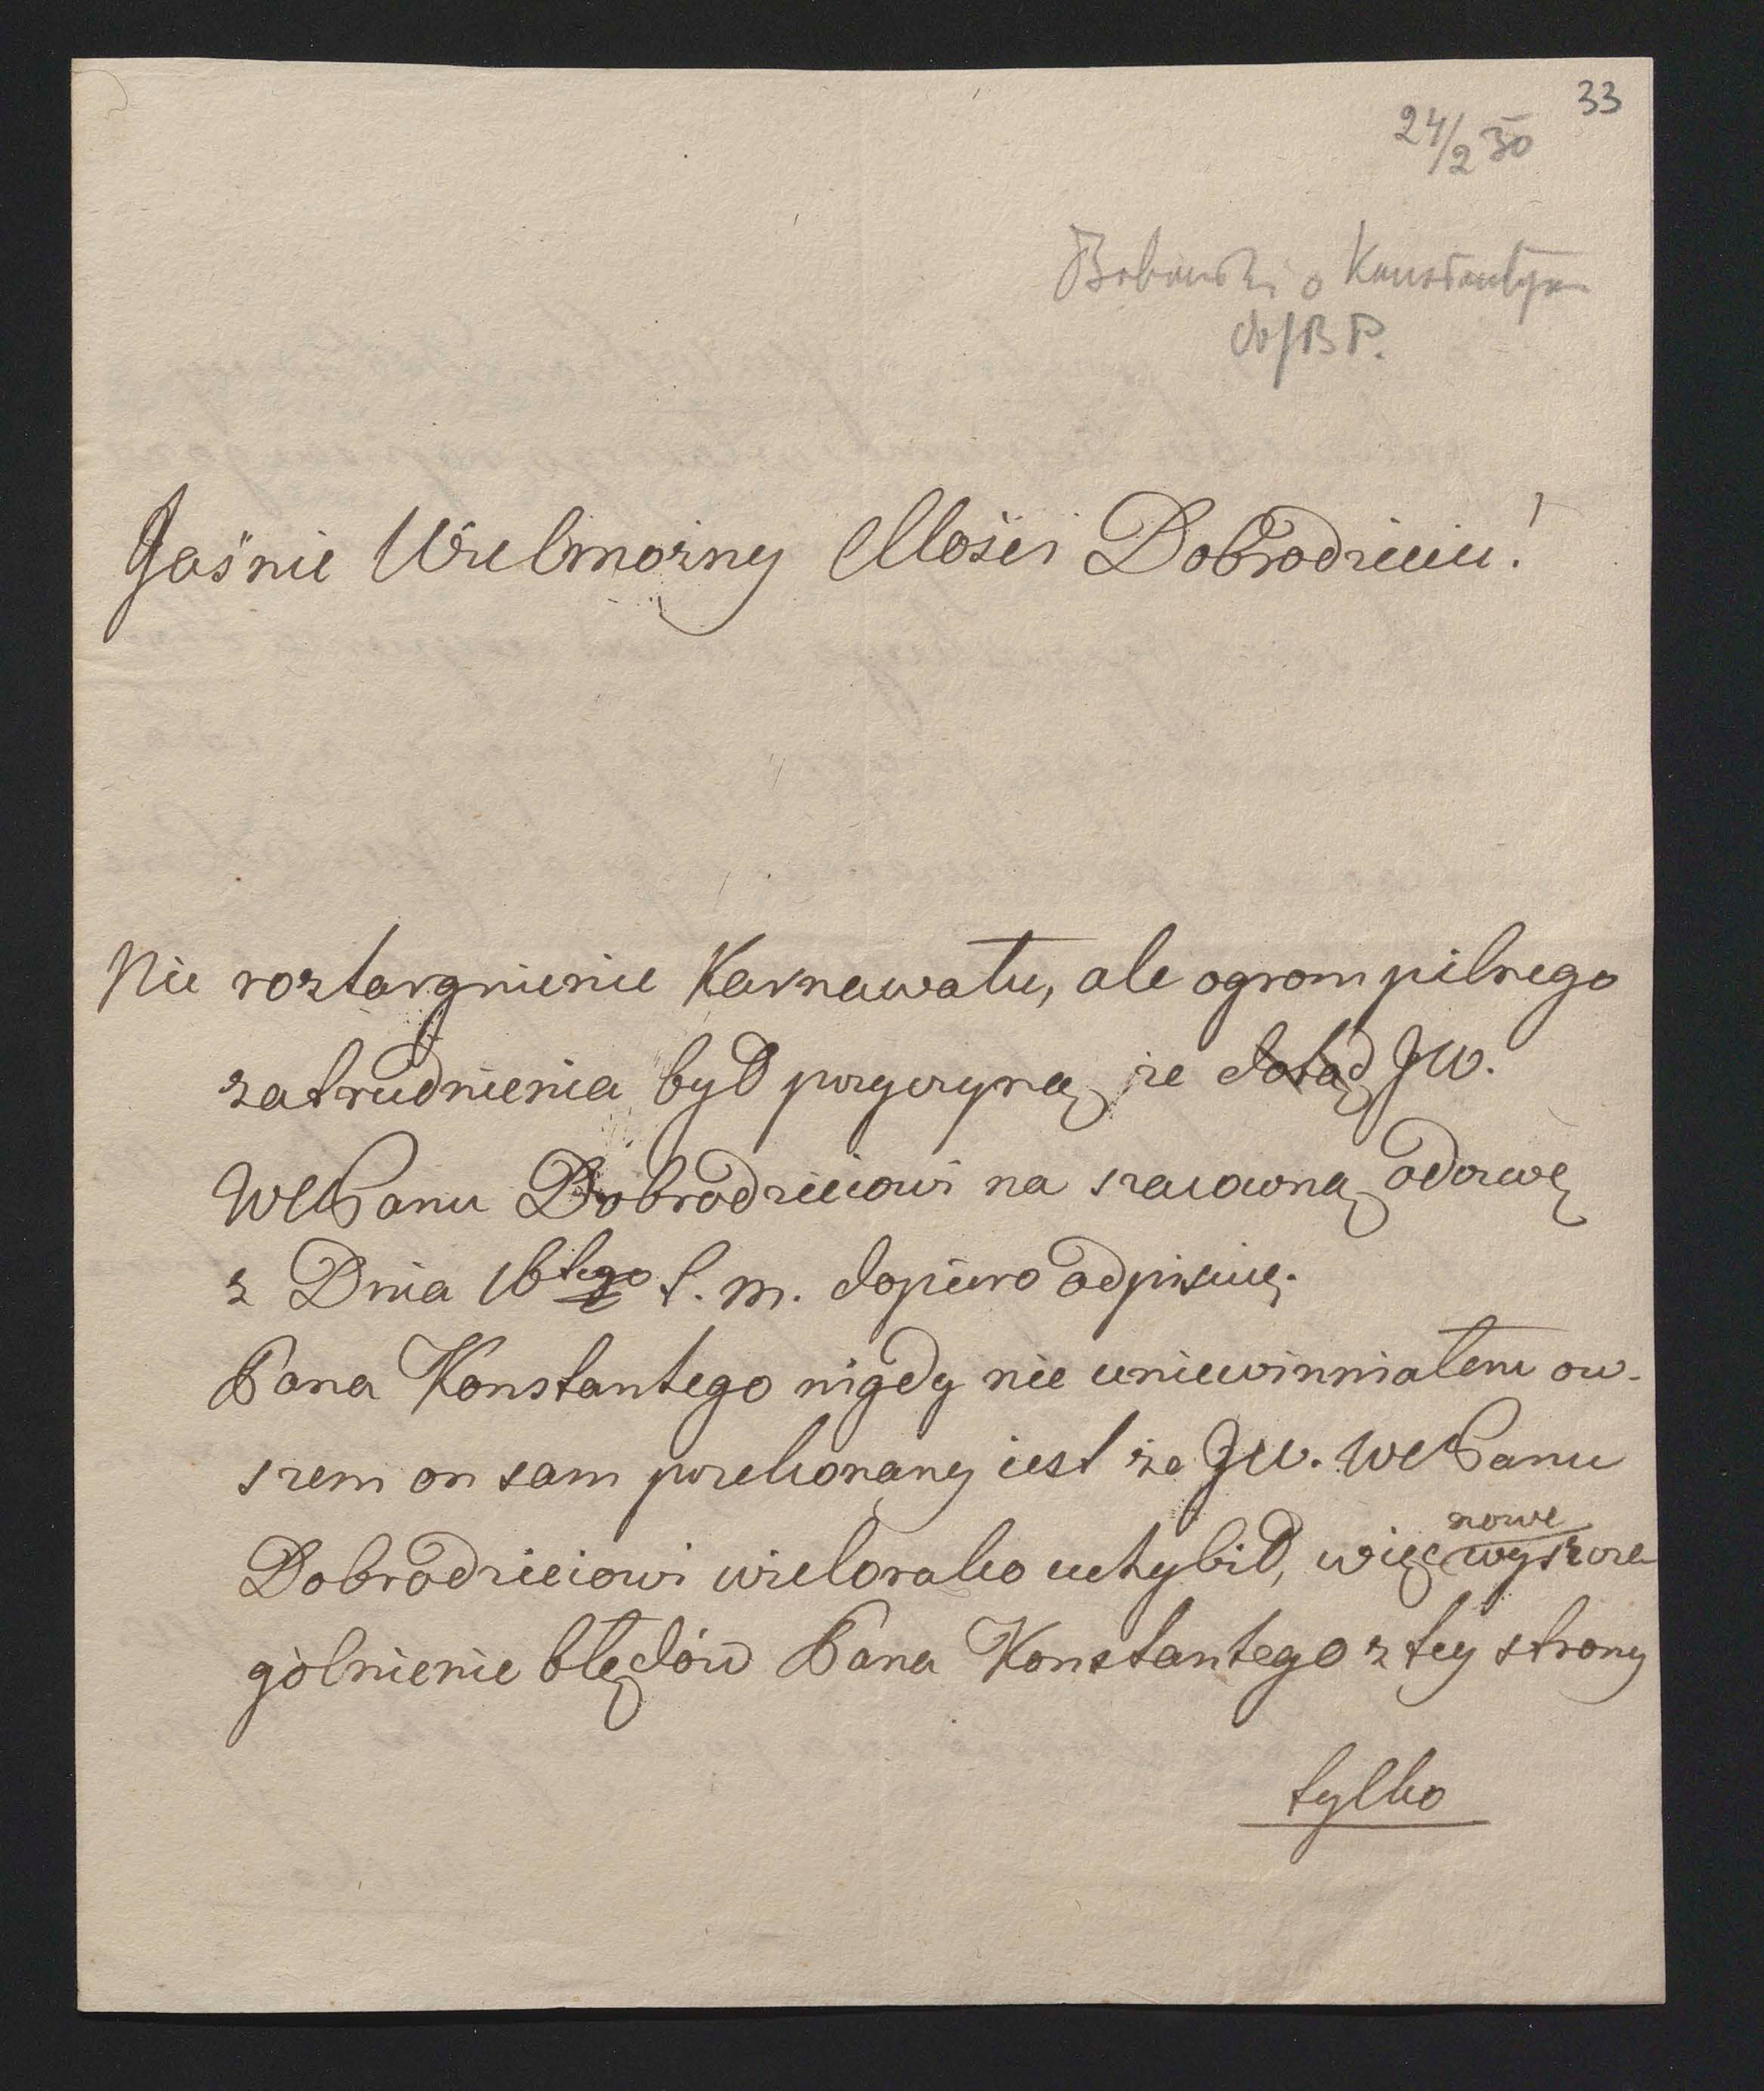 33
24/2 30
Babinski o Konstantym
do JBP.
Jaśnie Wielmożny Mości Dobrodzieiu!
Nie roztargnienie Karnawału, ale ogrom pilnego
zatrudnienia był przyczyną, że dotąd JW.
WMPanu Dobrodzieiowi na szacowną odezwę
z Dnia 16tego t. m. dopiero odpisuię.
Pana Konstantego nigdy nie uniewinniałem ow-
szem on sam przekonany iest że JW. WMPanu
Dobrodzieiowi wielorako uchybił, więc nowe wyszcze
gólnienie błędów Pana Konstantego z tey strony
tylko